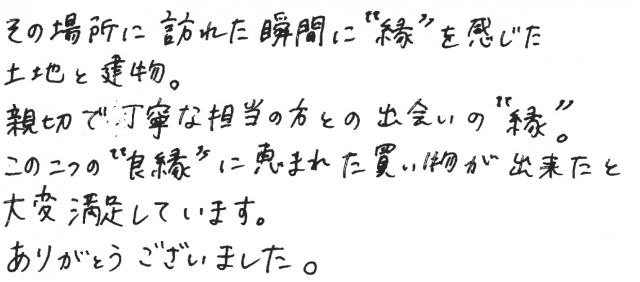 その場所に訪れた瞬間に“縁”を感じた
土地と建物。
親切で丁寧な担当の方との出会いの“縁”。
この二つの“良縁”に恵まれた買い物が出来たと
大変満足しています。
ありがとうございました。